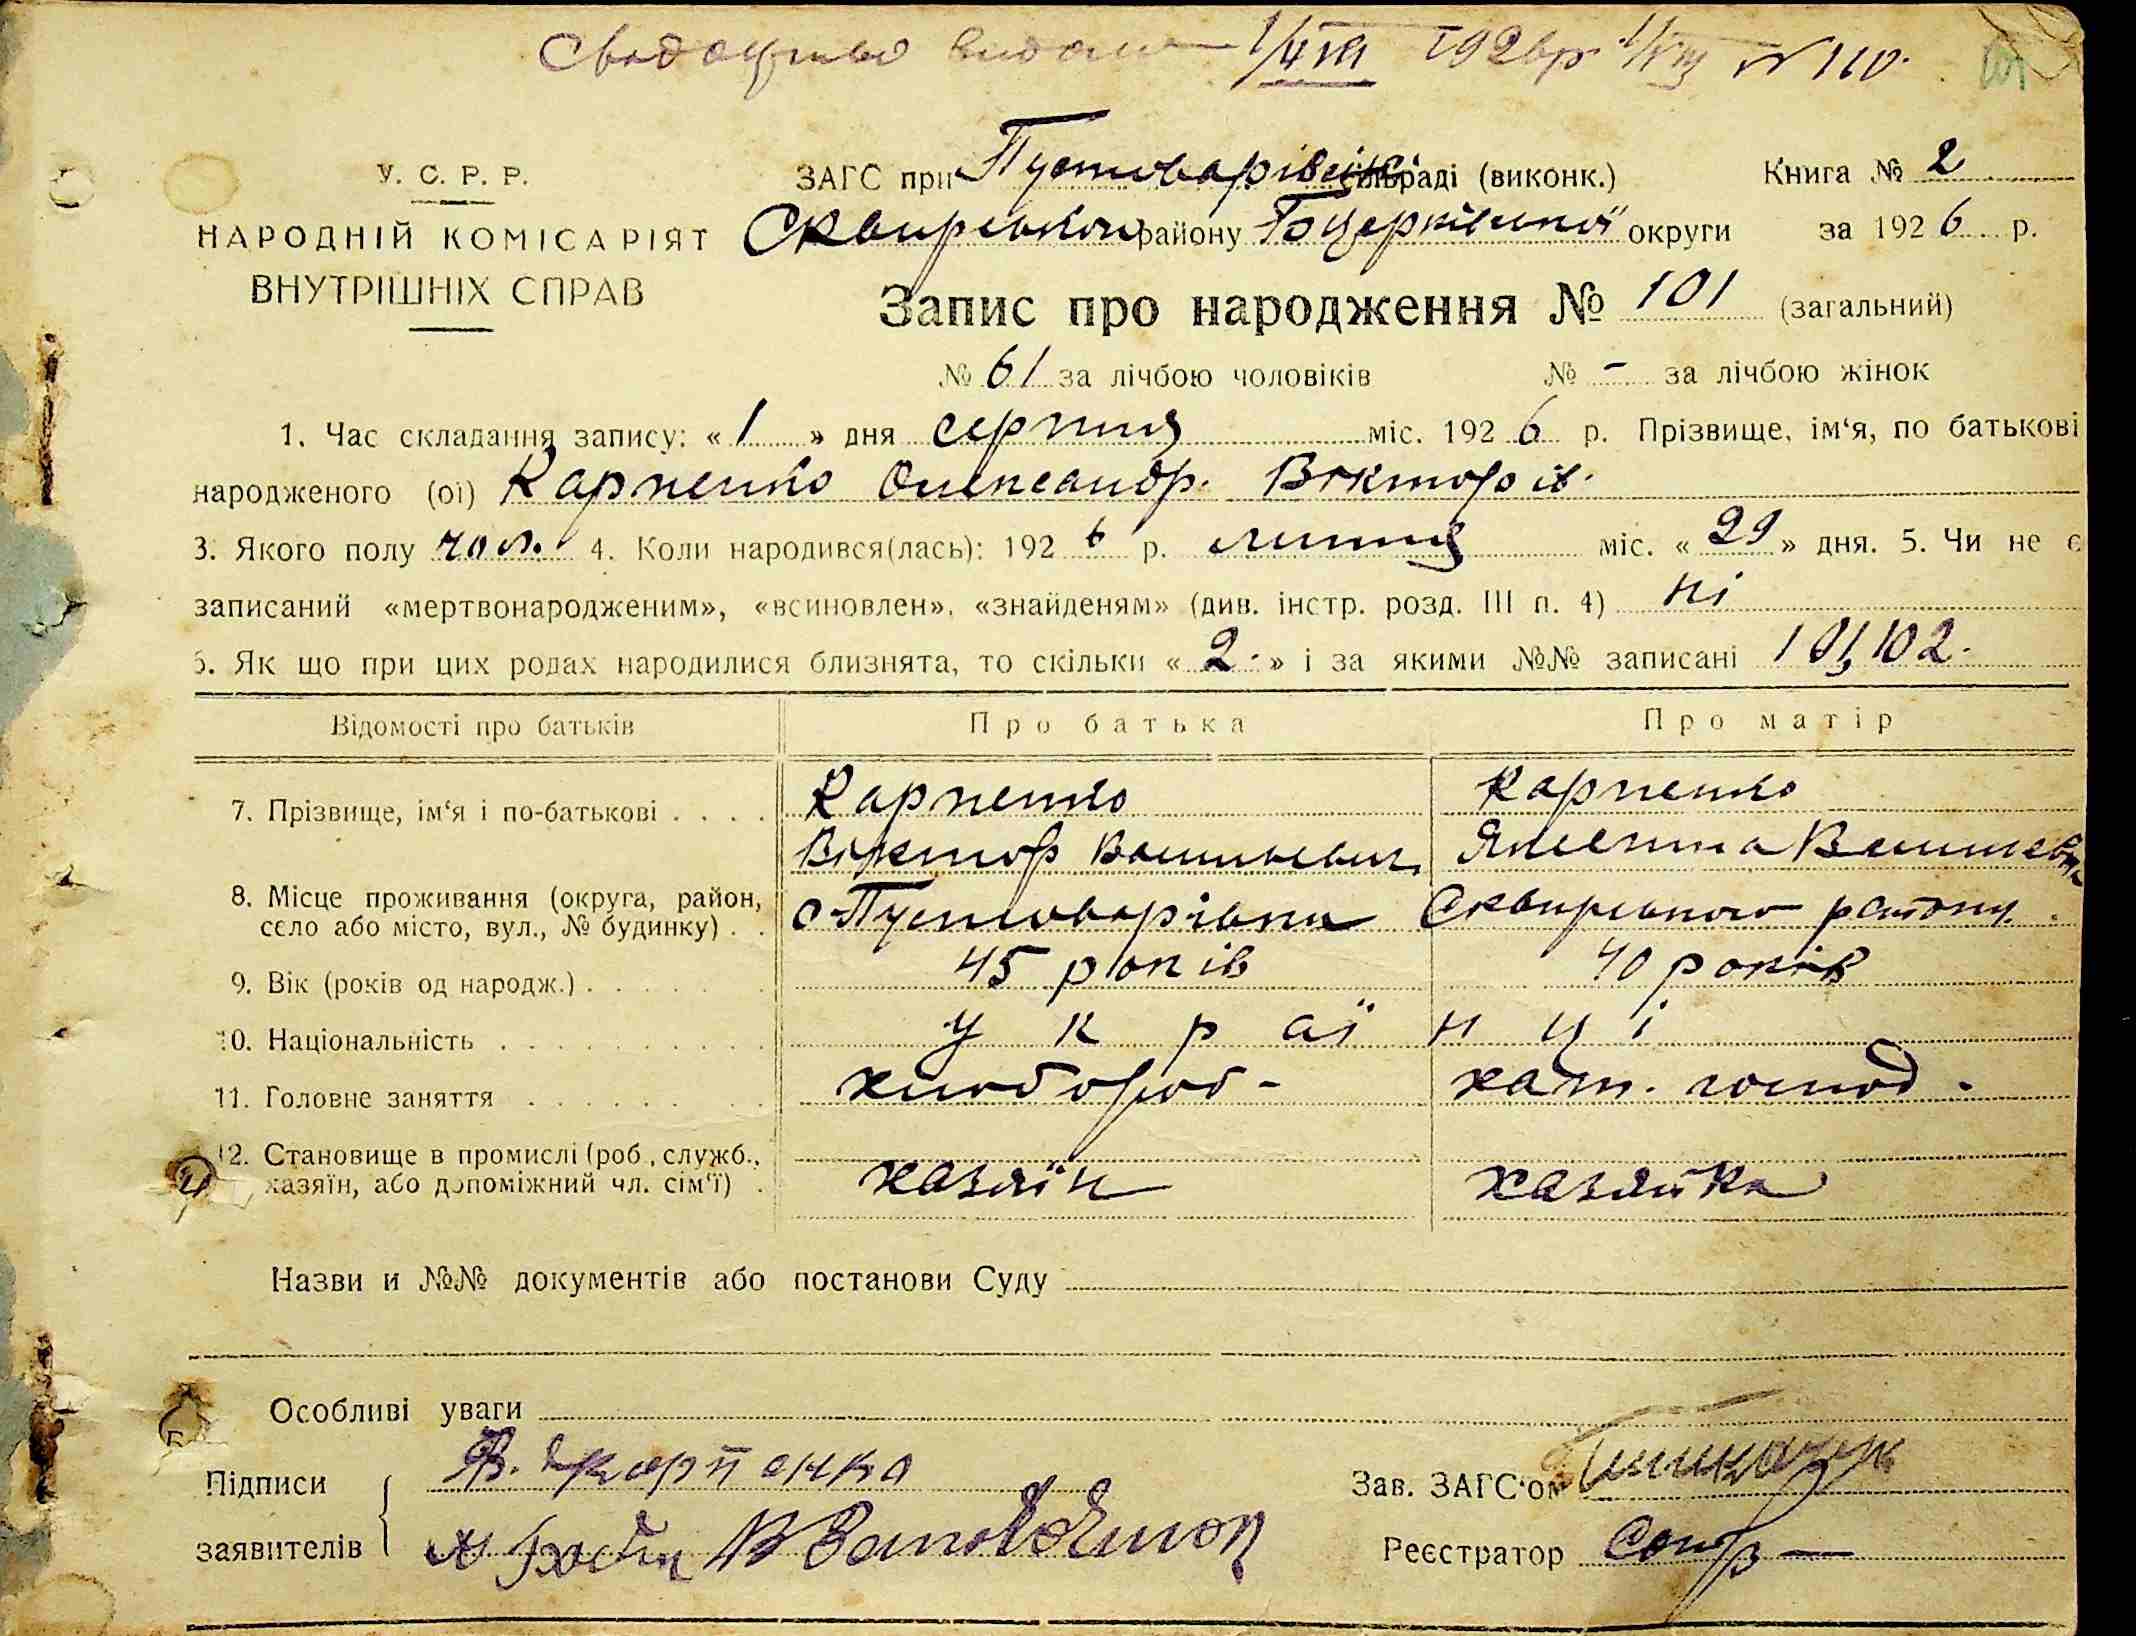 Свадоцтво видано 1/VIII 1926р. 1/VIII № 110.
У. С. Р. Р.
НАРОДНІЙ КОМІСАРІЯТ
ВНУТРІШНІХ СПРАВ
ЗАГС при Пустоварівськ. сільраді (виконк.) Книга № 2
Сквирського району Б Церківської округи за 1926 р.
Запис про народження № 101 (загальний)
№ 61 за лічбою чоловіків № - за лічбою жінок
1. Час складання запису: «1» дня серпня міс. 1926 р. Прізвище, ім‘я, по батькові
народженого (ої) Карпенко Олександр. Вікторів.
3. Якого полу чол. 4. Коли народився(лась): 1926 р. липня міс. «29» дня. 5. Чи не є
записаний «мертвонародженим», «всиновлен», «знайденям» (див. інстр. розд. III п. 4) ні
6. Як що при цих родах народилися близнята, то скільки «2.» і за якими №№ записані 101, 102.
Відомості про батьків Про батька Про матір
7. Прізвище, ім‘я і по-батькові . . . . Карпенко Карпенко
Віктор Васильевич Василевна
8. Місце проживання (округа, район, с. Пустоварівка Сквирського району.
село або місто, вул., № будинку) . .
9. Вік (років од народж.) . . . . . . 45 років 40 років
10. Національність . . . . . . . . . . українці
11. Головне заняття . . . . . . . . хлібороб - хат. господ.
12. Становище в промислі (роб., служб.,
хазяїн, або допоміжний чл. сім‘ї) . хазяїн хазяйка
Назви и №№ документів або постанови Суду
Особливі уваги
Підписи В. Карпенко Зав. ЗАГС‘ом
заявителів Реєстратор